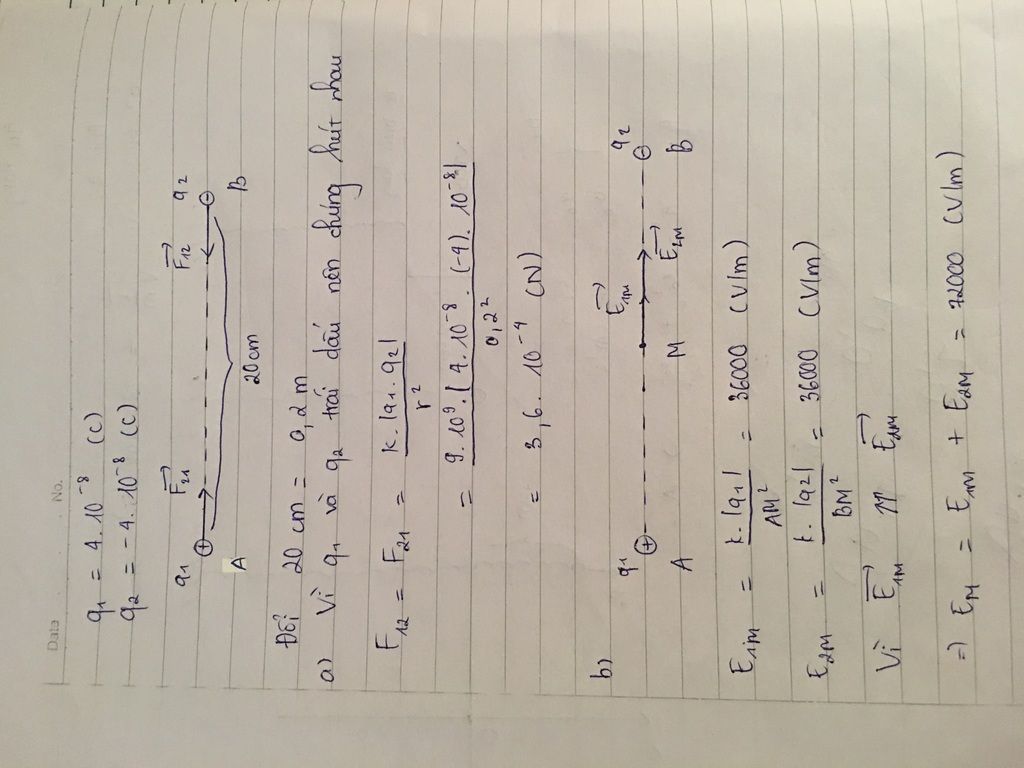 Date No.
q₁ = 4.10⁻⁸ (C)
q₂ = -4.10⁻⁸ (C)
q₁ F₂₁→ F₁₂→ q₂
⊕ ⊖
A B
20cm
Đổi 20 cm = 0,2 m
a) Vì q₁ và q₂ trái dấu nên chúng hút nhau
F₁₂ = F₂₁ = k.|q₁.q₂| / r²
= 9.10⁹.|4.10⁻⁸.(-4).10⁻⁸| / 0,2²
= 3,6.10⁻⁴ (N)
b) q₁ E₁M→ q₂
⊕ ⊖
A M E₂M→ B
E₁M = k.|q₁| / AM² = 36000 (V/m)
E₂M = k.|q₂| / BM² = 36000 (V/m)
Vì E₁M→ ⇈ E₂M→
=> EM = E₁M + E₂M = 72000 (V/m)